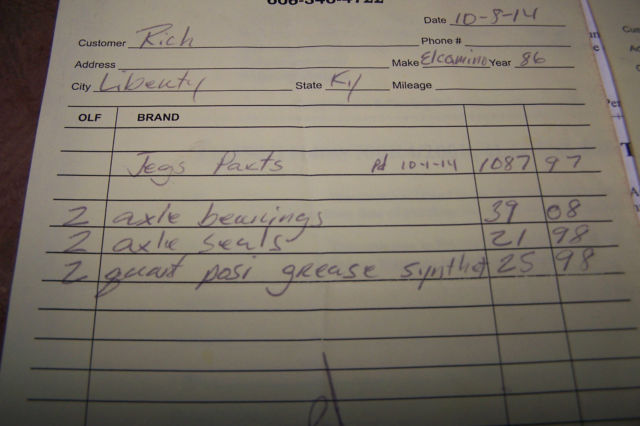 Date 10-8-14
Customer Rich Phone #
Address Make Elcamino Year 86
City Liberty State Ky Mileage
OLF BRAND
Jegs Parts Pd 10-1-14 1087 97
2 axle bearings 39 08
2 axle seals 21 98
2 quart posi grease synthet 25 98